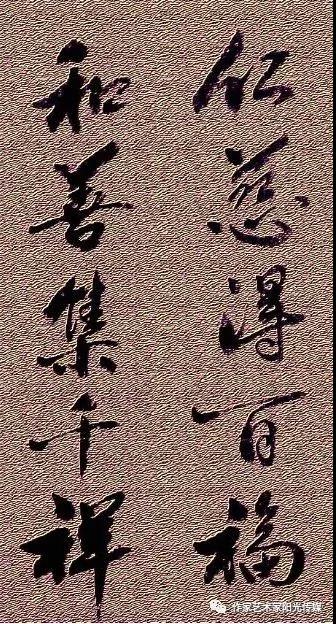 仁慈得百福
和善集千祥
作家艺术家阳光传媒